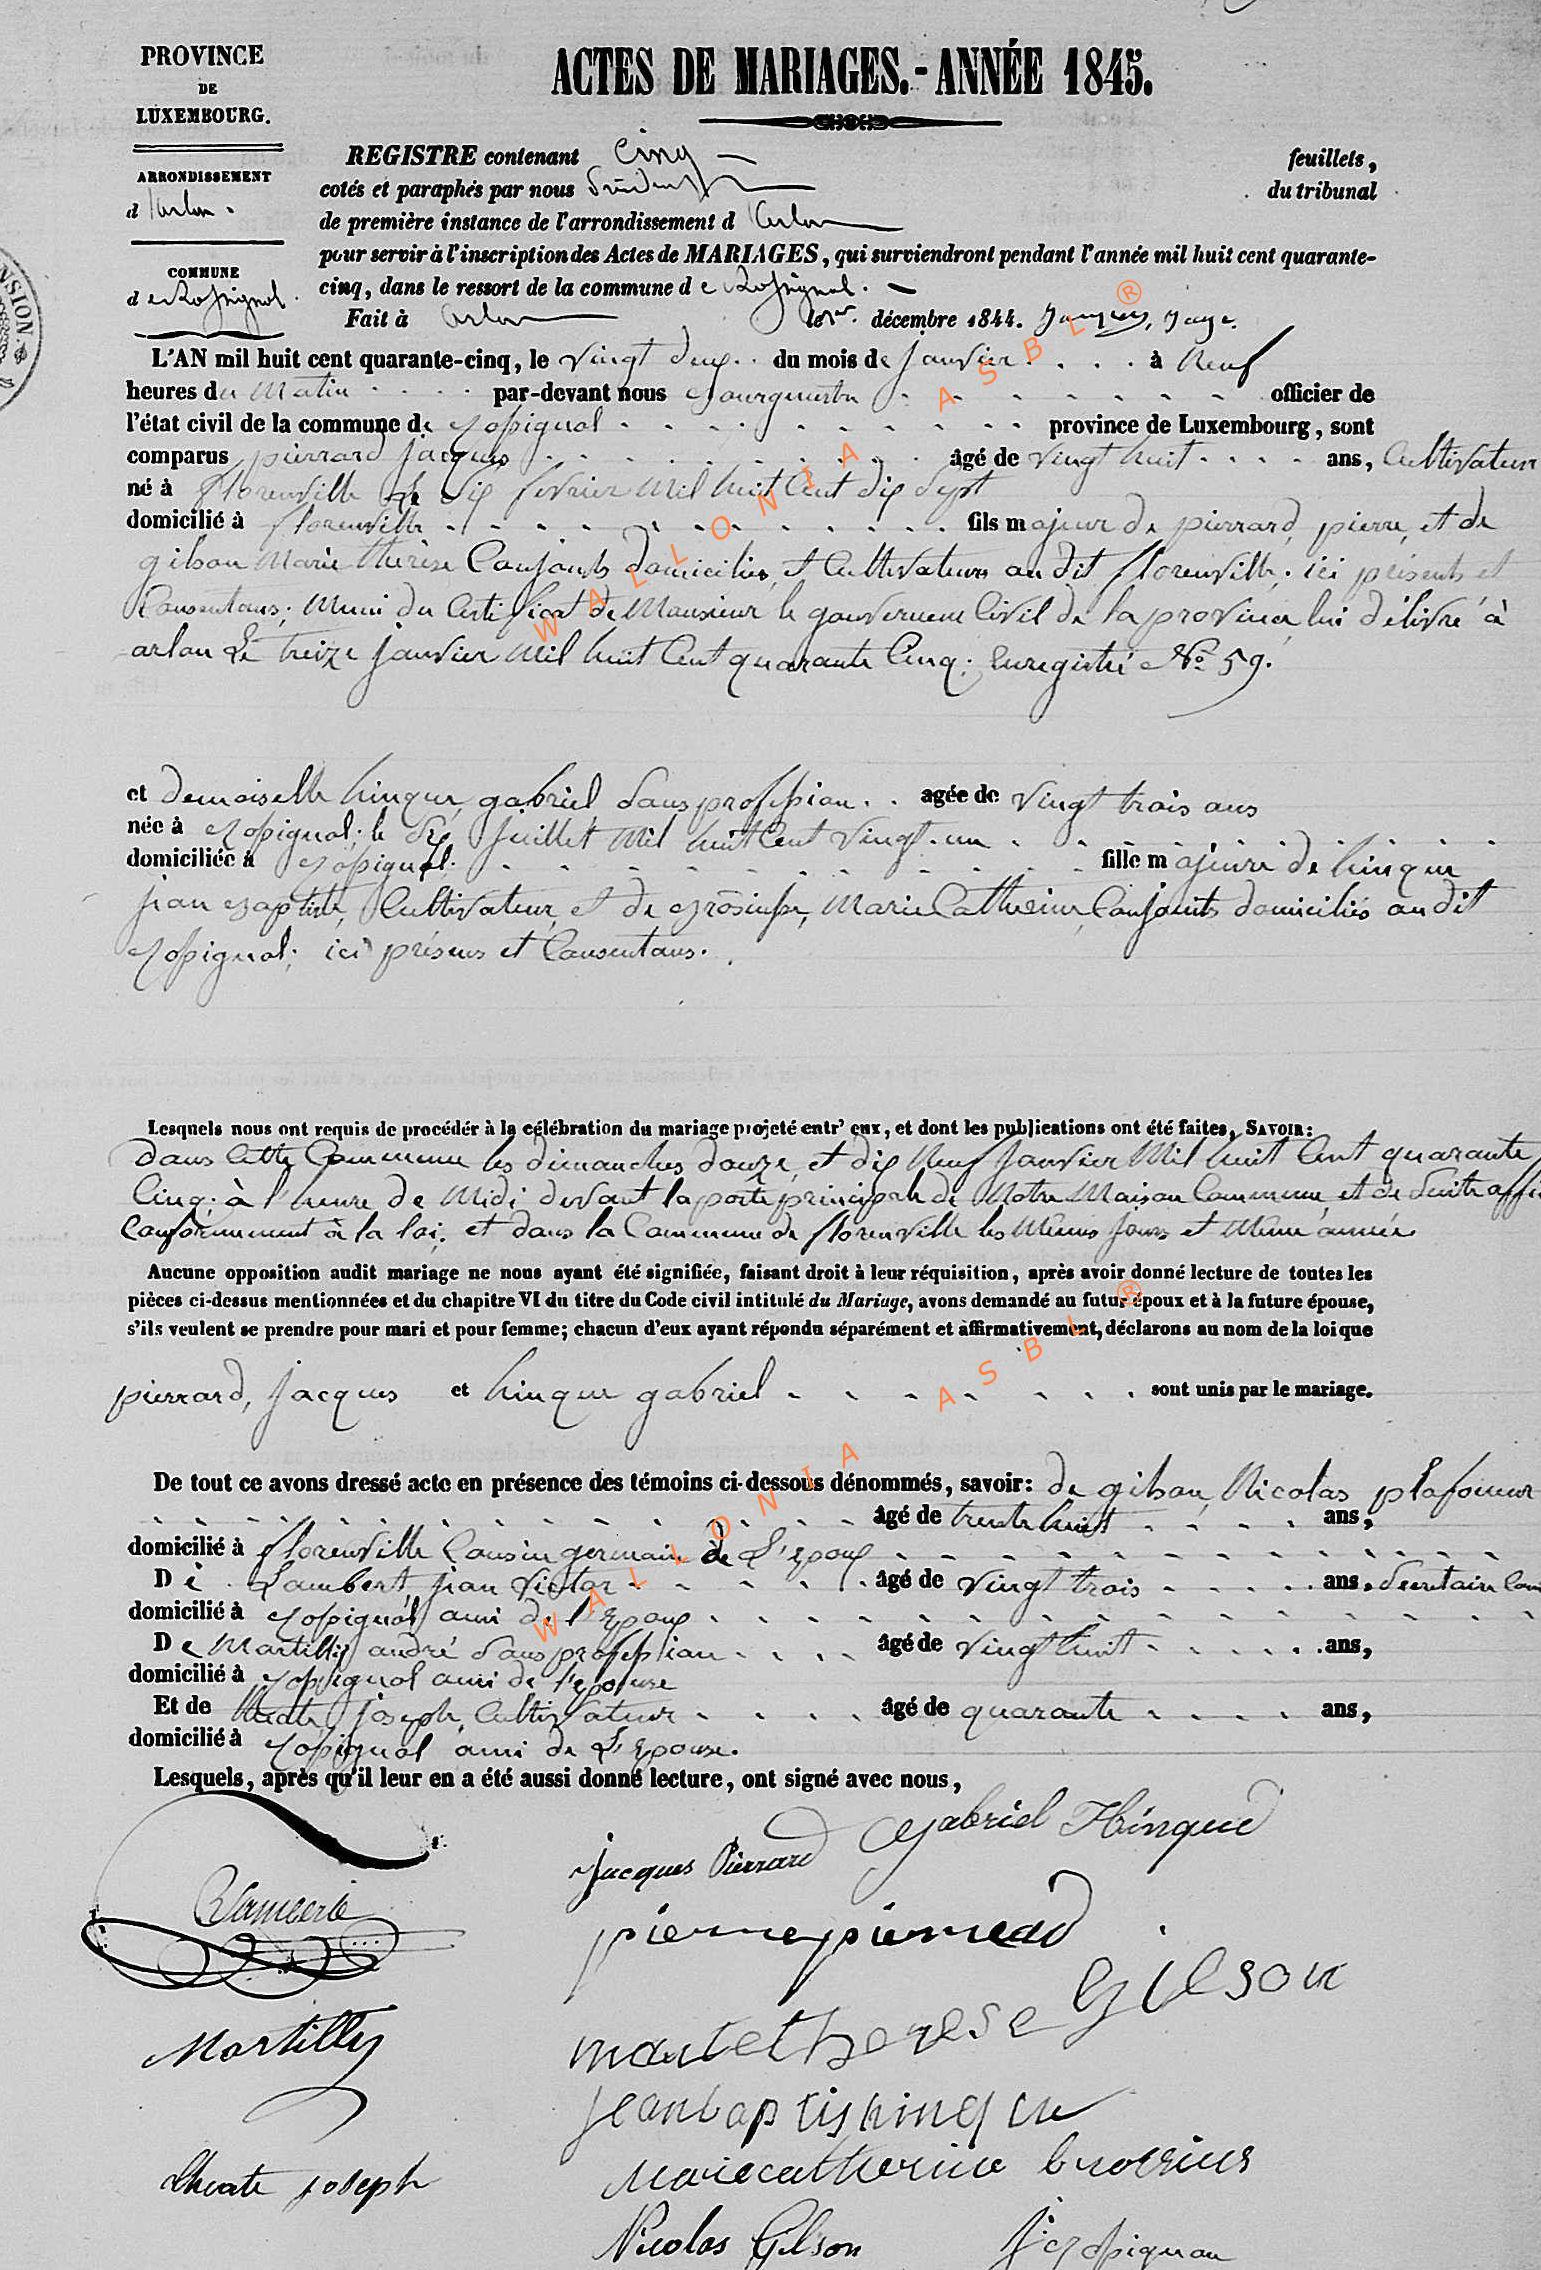 PROVINCE
DE
LUXEMBOURG.
ARRONDISSEMENT
d'Arlon.
COMMUNE
de Rossignol.
ACTES DE MARIAGES.-ANNÉE 1845.
REGISTRE contenant Cinq feuillets,
cotés et paraphés par nous Président du tribunal
de première instance de l'arrondissement d'Arlon
pour servir à l'inscription des Actes de MARIAGES, qui surviendront pendant l'année mil huit cent quarante-
cinq, dans le ressort de la commune de Rossignol.
Fait à Arlon le 1er. décembre 1844.
L'AN mil huit cent quarante-cinq, le vingt deux du mois de janvier à Neuf
heures du Matin par-devant nous Bourguemestre officier de
l'état civil de la commune de Rossignol province de Luxembourg, sont
comparus pierrard jacques âgé de vingt huit ans, Cultivateur
né à florenville le dix fevrier mil huit Cent dix Sept
domicilié à florenville fils majeur de pierrard, pierre, et de
gilson Marie thérèse Conjoints domiciliés, et Cultivateurs au dit florenville; ici présents et
Consentans; Muni du Certificat de Monsieur le gouverneur Civil de la province, lui délivré à
arlon Le treize janvier Mil huit Cent quarante Cinq; Enregistré No. 59.
et demoiselle hinque, gabriel, Sans profession. agée de vingt trois ans
née à Rossignol; le dix juillet Mil huit Cent vingt-un
domiciliée à Rossignol. fille majeure de hinque
jean Baptiste, Cultivateur, et de Brosius, Marie Catherine, Conjoints domiciliés au dit
Rossignol; ici présens et Consentans.
Lesquels nous ont requis de procédér à la célébration du mariage projeté entr' eux, et dont les publications ont été faites, SAVOIR:
Dans Cette Commune les dimanches douze, et dix Neuf janvier Mil huit Cent quarante
Cinq; à l'heure de Midi devant la porte principale de Notre Maison Commune, et de Suite affi
Conformement à la loi; et dans la Commune de florenville les Mêmes jours et Même année
Aucune opposition audit mariage ne nous ayant été signifiée, faisant droit à leur réquisition, après avoir donné lecture de toutes les
pièces ci-dessus mentionnées et du chapitre VI du titre du Code civil intitulé du Mariage, avons demandé au futur époux et à la future épouse,
s'ils veulent se prendre pour mari et pour femme; chacun d'eux ayant répondu séparément et affirmativement, déclarons au nom de la loi que
pierrard, jacques et hinque gabriel sont unis par le mariage.
De tout ce avons dressé acte en présence des témoins ci-dessous dénommés, savoir: de gilson, Nicolas plafoneur
âgé de trente huit ans,
domicilié à florenville Cousin germain de L'Epoux
De Lambert, jean Victor âgé de vingt trois ans, Secretaire Com
domicilié à Rossignol ami de l'Epoux
De Martilly andré Sans profession âgé de vingt huit ans,
domicilié à Rossignol ami de l'epouse
Et de joseph, Cultivateur âgé de quarante ans,
domicilié à Rossignol ami de L'Epouse.
Lesquels, après qu'il leur en a été aussi donné lecture, ont signé avec nous,
Gabriel Hinque
Jacques Pierrard
pierre pierrard
Martilly
marie therese Gilson
jean baptis hinque
marie catherine brosius
joseph
Nicolas Gilson
WALLONIA ASBL ®
WALLONIA ASBL ®